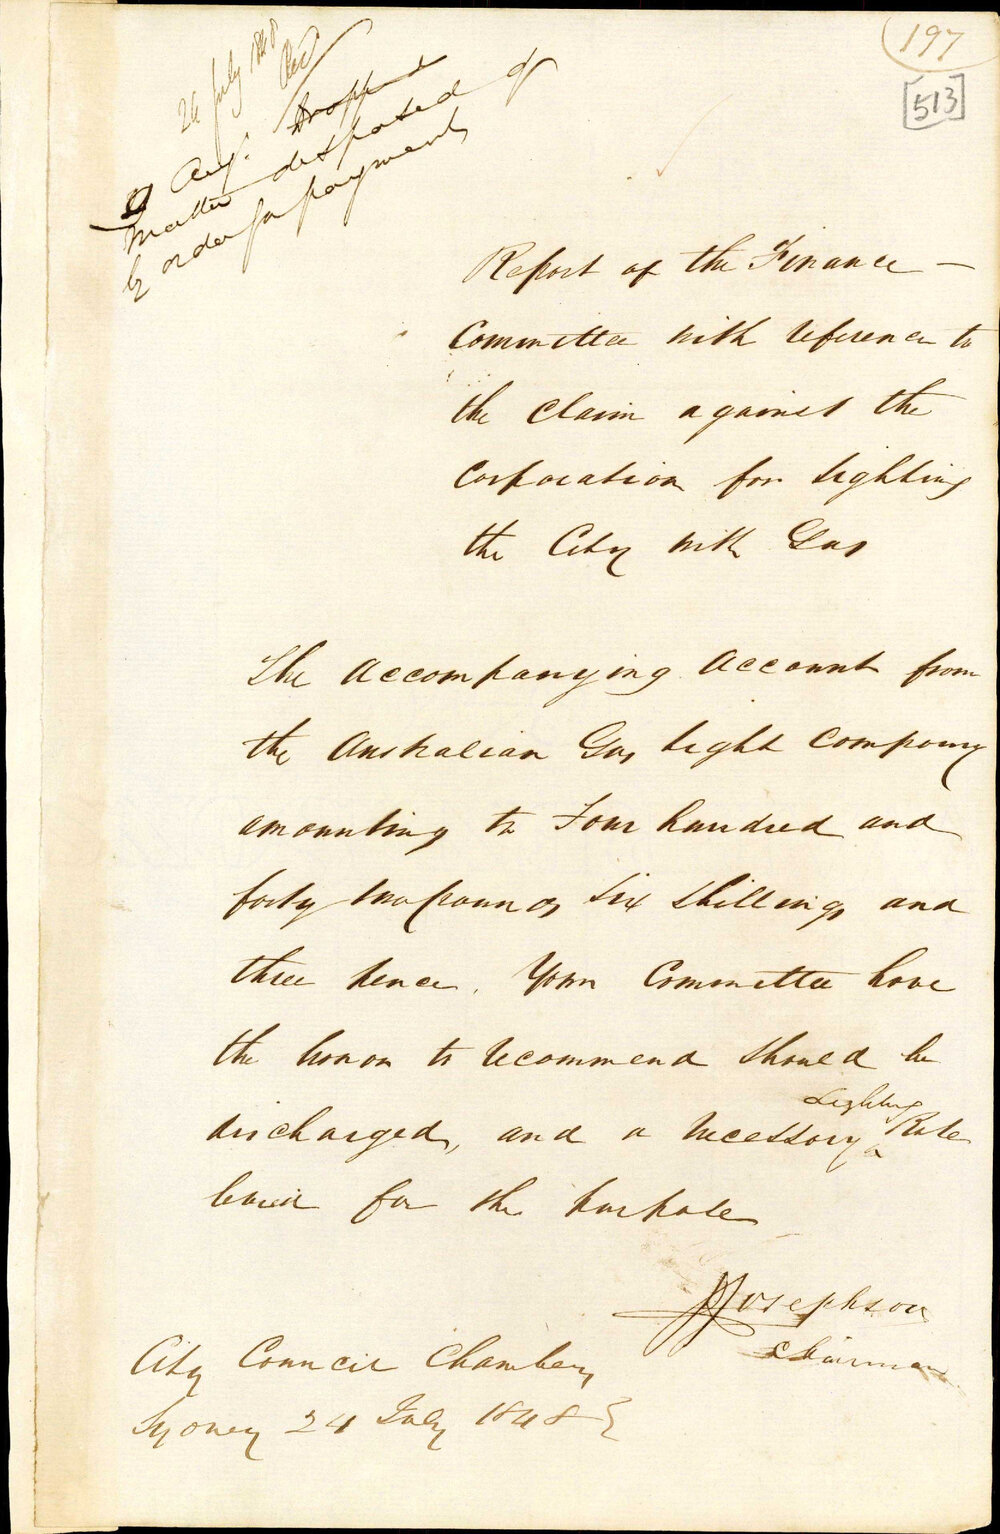 197
[513]
24 July 1848
Recd
9 Augt. Dropped
matter disposed of
by order for payment
Report of the Finance —
Committee with reference to
the Claim against the
Corporation for lighting
the City with Gas
The Accompanying Account from
the Australian Gas light Company
amounting to Four hundred and
forty two pounds six shillings and
three pence. Your Committee have
the honor to recommend should be
Lighting
discharged, and a necessary ^ Rate
levied for the purpose
J Josephson
Chairman
City Council Chambers
Sydney 24 July 1848 }